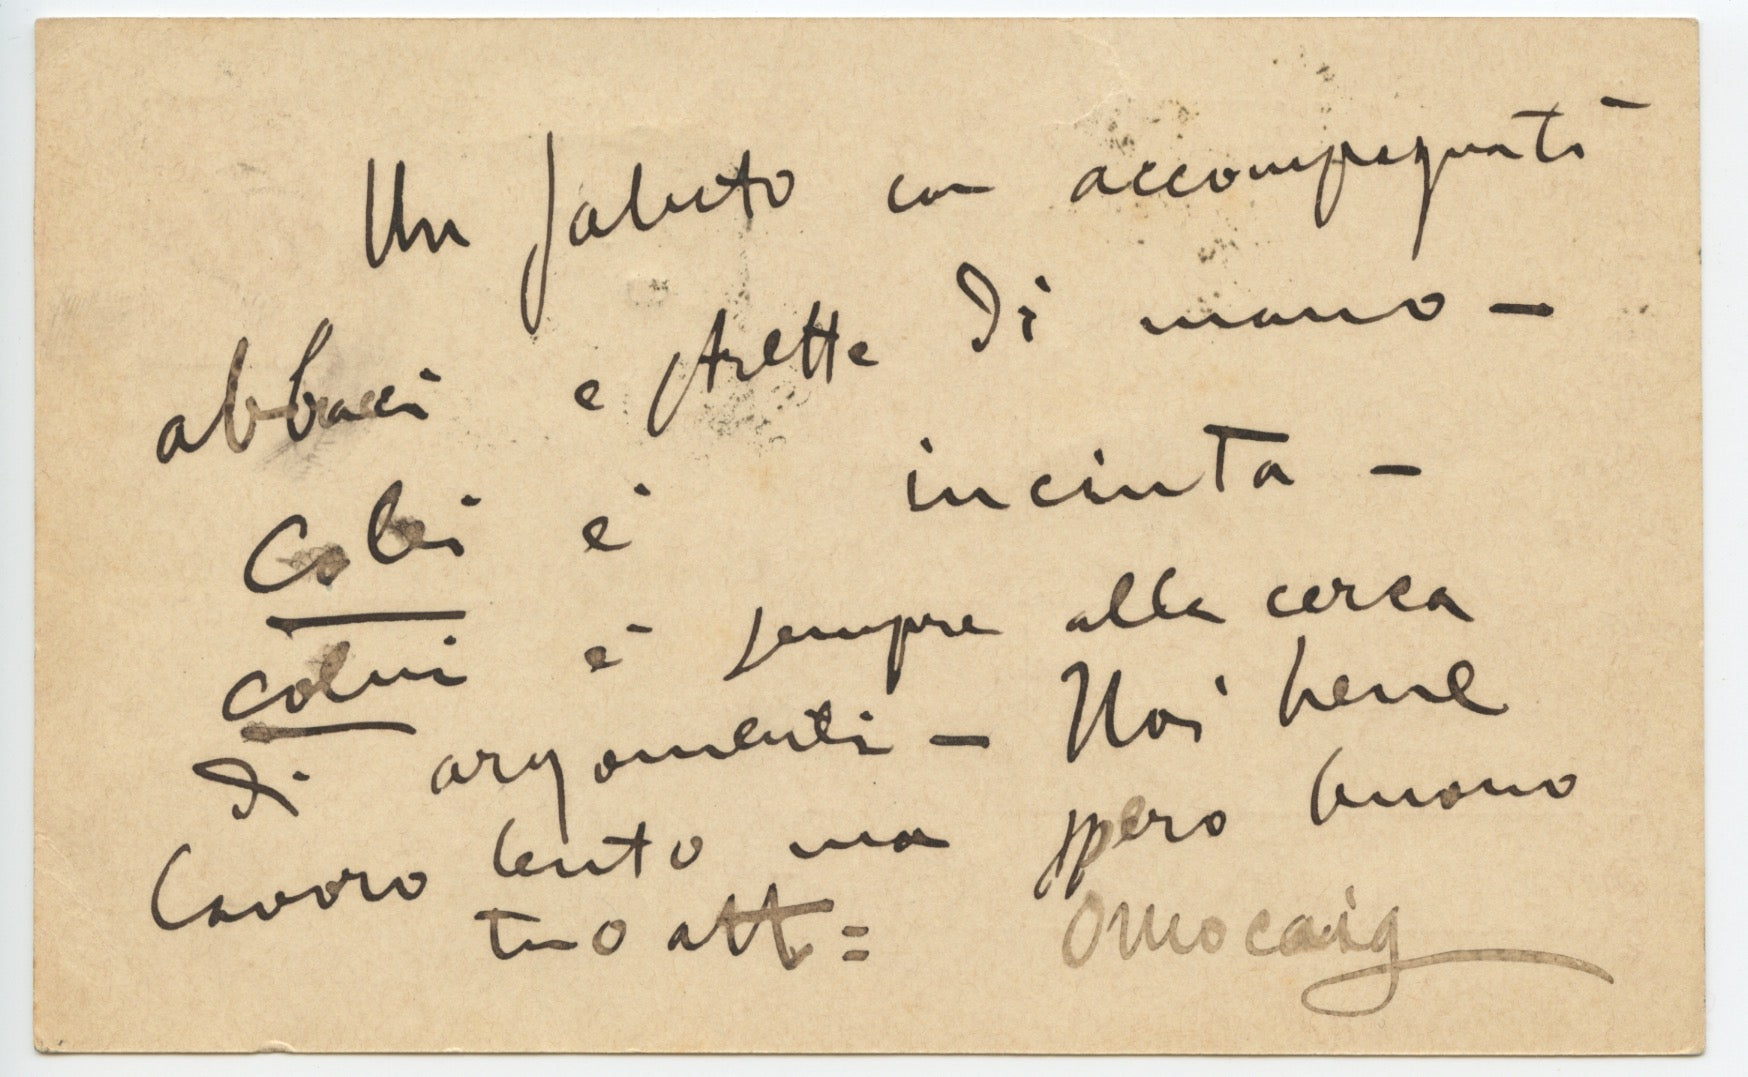 Un saluto con accompagnati
abbracci e strette di mano -
Colei è incinta -
colui è sempre alla cerca
di argomenti - Noi bene
lavoro lento ma spero buono
tuo att =